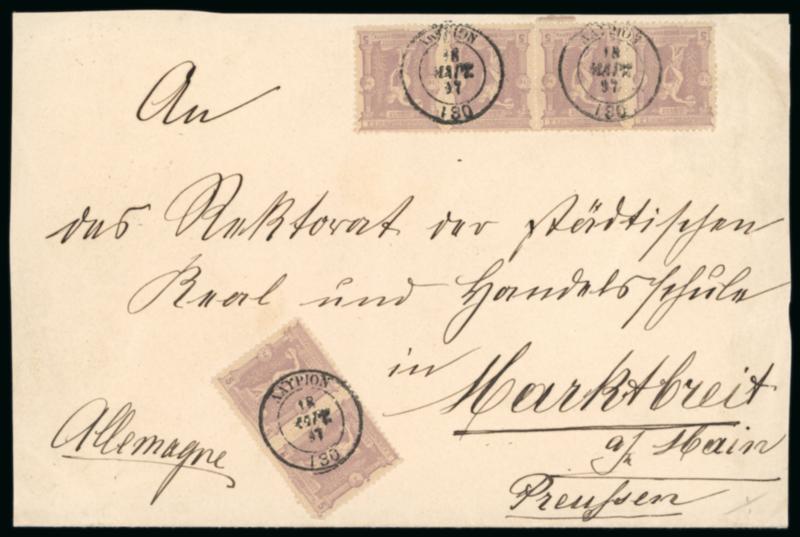 ΛΑΥΡΙΟΝ
18
ΜΑΡΤ
97
180
ΛΑΥΡΙΟΝ
18
ΜΑΡΤ
97
180
An
das Rektorat der städtischen
Real und Handelsschule
in Marktbreit
a/ Main
Preussen
Allemagne
ΛΑΥΡΙΟΝ
18
ΜΑΡΤ
97
180